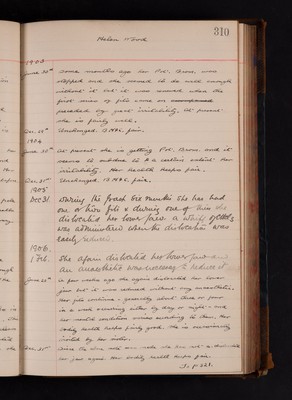 Helen Wood
310
1903
June 30th Some months ago her Pot. Brom. was
stopped and she seemed to do well enough
without it but it was resumed when the
first series of fits came on
preceded by great irritability. At present
she is fairly well.
Dec. 25th Unchanged. B. Hlth. fair.
1904
June 30th At present she is getting Pot. Brom. and it
seems to subdue to a certain extent her
irritability. Her health keeps fair.
Dec. 31st Unchanged. B. Hlth. fair.
1905
Dec 31. During the past six months she has had
one or two fits & during one of them she
dislocated her lower jaw. a whiff of CHCl3
was administered when the dislocation was
easily reduced.
1906.
1 Feb. She again dislocated her lower jaw and
an anaesthetic was necessary to reduce it
June 25th A few weeks ago she again dislocated her lower
jaw but it was reduced without any anaesthetic.
Her fits continue - generally about three or four
in a week occurring either by day or night - and
her mental condition varies according to them. Her
bodily health keeps fairly good. She is occasionally
visited by her sister.
Dec. 31st Since the above note was made she has not dislocated
her jaw again. Her bodily health keeps fair.